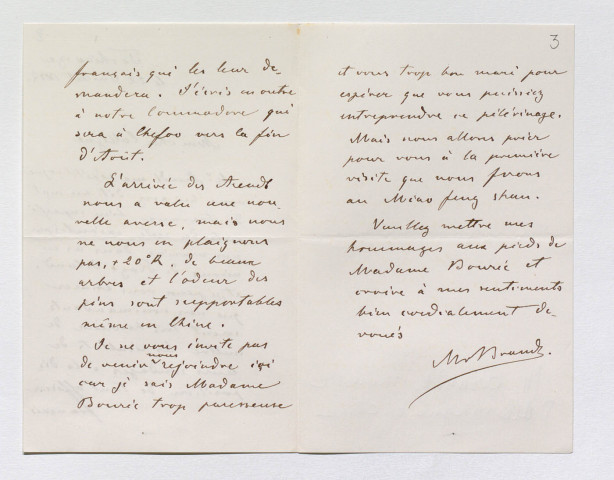 français qui les leur de-
mandera. J'écris en outre
à notre Commodore qui
sera à Chefoo vers la fin
d'Août.
L'arrivée des Arendt
nous a valu une nou-
velle averse, mais nous
ne nous en plaignons
pas, + 20°R. de beaux
arbres et l'odeur des
pins sont supportables
même en Chine.
Je ne vous invite pas
de venir nous rejoindre ici
car je sais Madame
Bourée trop paresseuse
3
et vous trop bon mari pour
espérer que vous puissiez
entreprendre ce pélérinage.
Mais nous allons prier
pour vous à la première
visite que nous ferons
au Miao feng shan.
Veuillez mettre mes
hommages aux pieds de
Madame Bourée et
croire à mes sentiments
bien cordialement dé-
voués
MvBrandt.